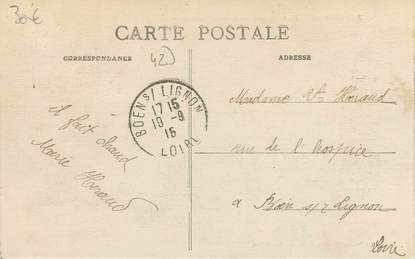 30€
CARTE POSTALE
CORRESPONDANCE
42)
ADRESSE
BOEN S/ LIGNON
17 15
19 - 9
15
LOIRE
il fait chaud
Marie Héraud
Madame Vve Héraud
rue de l'hospice
a Boën s/ Lignon
Loire